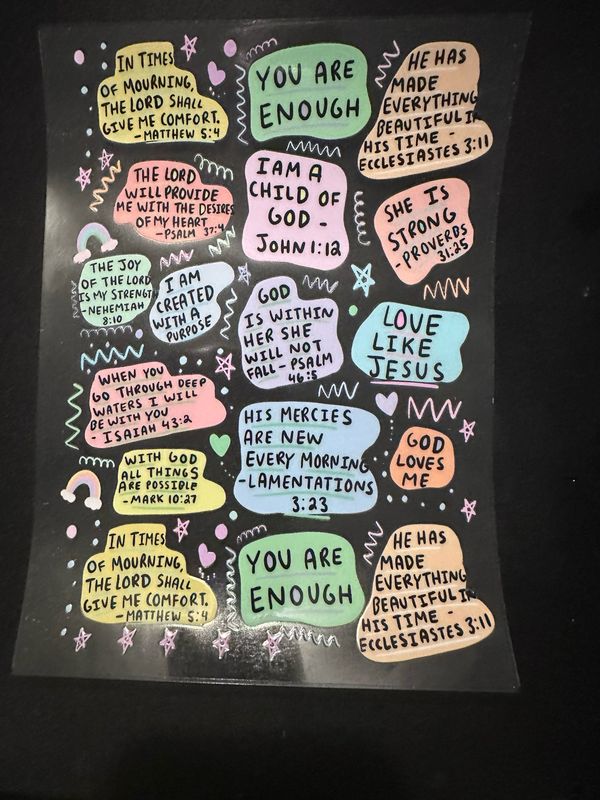 IN TIMES
OF MOURNING,
THE LORD SHALL
GIVE ME COMFORT.
-MATTHEW 5:4
YOU ARE
ENOUGH
HE HAS
MADE
EVERYTHING
BEAUTIFUL IN
HIS TIME -
ECCLESIASTES 3:11
THE LORD
WILL PROVIDE
ME WITH THE DESIRES
OF MY HEART
-PSALM 37:4
I AM A
CHILD OF
GOD -
JOHN 1:12
SHE IS
STRONG
-PROVERBS
31:25
THE JOY
OF THE LORD
IS MY STRENGTH
-NEHEMIAH
8:10
I AM
CREATED
WITH A
PURPOSE
GOD
IS WITHIN
HER SHE
WILL NOT
FALL - PSALM
46:5
LOVE
LIKE
JESUS
WHEN YOU
GO THROUGH DEEP
WATERS I WILL
BE WITH YOU
- ISAIAH 43:2
HIS MERCIES
ARE NEW
EVERY MORNING
-LAMENTATIONS
3:23
GOD
LOVES
ME
WITH GOD
ALL THINGS
ARE POSSIBLE
-MARK 10:27
IN TIMES
OF MOURNING,
THE LORD SHALL
GIVE ME COMFORT.
-MATTHEW 5:4
YOU ARE
ENOUGH
HE HAS
MADE
EVERYTHING
BEAUTIFUL IN
HIS TIME -
ECCLESIASTES 3:11